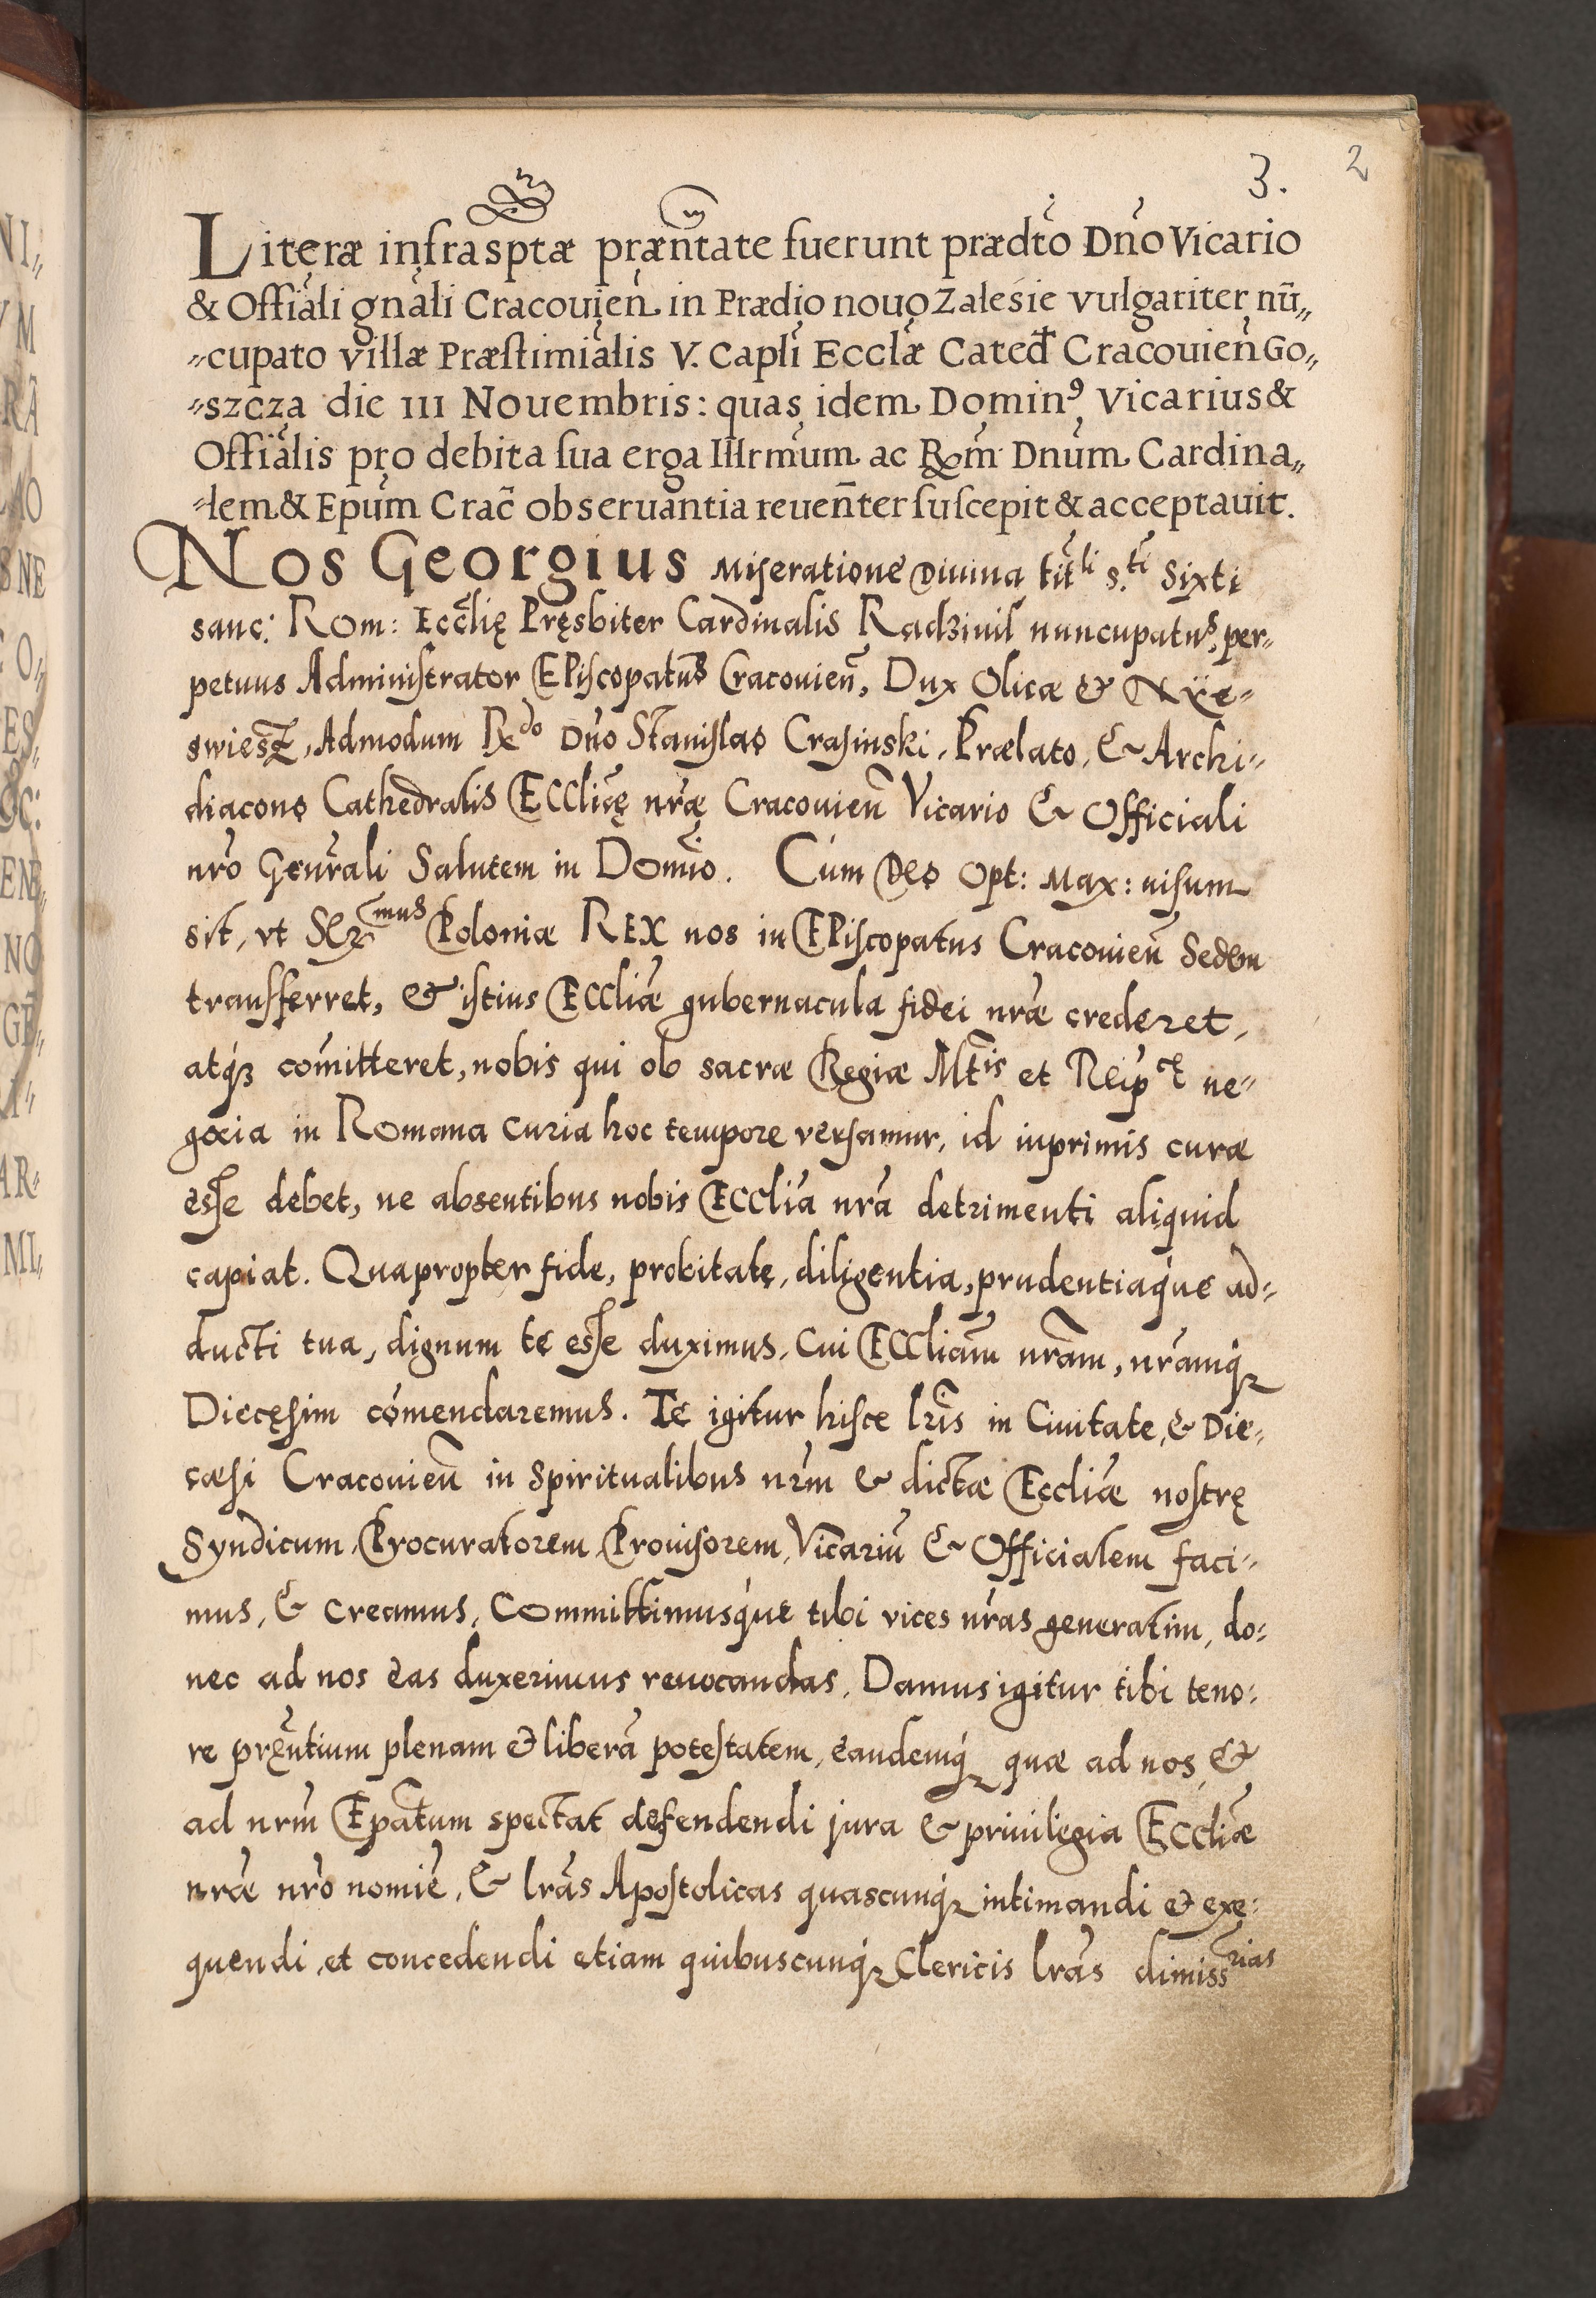 3. 2
Literæ infrasptæ præn̄tate fuerunt prædto Dn̄o Vicario
& Offiali gnāli Cracouien̄ in Prædio nouo Zalesie vulgariter nū„
„cupato villæ Præstimialis V. Capli Ecclæ Cated Cracouien̄ Go„
„szcza die III Nouembris: quas idem Dominꝰ Vicarius &
Offialis pro debita sua erga Illrmum ac Rm̄ Dnum Cardina„
„lem & Epum Crac̄ obseruantia reuen̄ter suscepit & acceptauit.
Nos Georgius Miseratione Diuina titli s.ti Sixti
sanc: Rom: Ecclię Pręsbiter Cardinalis Radziuil nuncupatus, per-
petuus Administrator Episcopatus Cracouien̄, Dux Olicæ & Nÿe-
swiesz, Admodum Rdo Dn̄o Stanislao Crasinski, Prælato, & Archi-
diacono Cathedralis Ecclię nr̄æ Cracouien̄ Vicario & Officiali
nr̄o Genr̄ali Salutem in Domi̅o. Cum Deo Opt: Max: uisum
sit, vt Ser̄mus Poloniæ REX nos in Episcopatus Cracouien̄ Sedem
transferret, & istius Eccliæ gubernacula fidei nr̄æ crederet,
atq́ꝫ com̄itteret, nobis qui ob sacræ Regiæ Mt̄is et Reip̄ce ne-
gocia in Romana Curia hoc tempore versamur, id inprimis curæ
esse debet, ne absentibus nobis Ecclia nr̄a detrimenti aliquid
capiat. Quapropter fide, probitate, diligentia, prudentiaq́ue ad-
ducti tua, dignum te esse duximus, Cui Eccliam nr̄am, nr̄amq́ꝫ
Diecęsim com̄endaremus. Te igitur hisce lr̄is in Ciuitate, & Die-
cæsi Cracouien̄ in Spiritualibus nr̄m & dictæ Eccliæ nostrę
Syndicum, Procuratorem, Prouisorem, Vicariū & Officialem faci-
mus, & Creamus, Committimusq́ue tibi vices nr̄as generatim, do-
nec ad nos eas duxerimus reuocandas, Damus igitur tibi teno-
re pręn̄tium plenam & liberā potestatem, eandemq́ꝫ quæ ad nos, &
ad nr̄m Epatum spectat defendendi jura & priuilegia Eccliæ
nr̄æ nr̄o nomi̅e, & lr̄as Apostolicas quascunq́ꝫ intimandi & exe-
quendi, et concedendi etiam quibuscunq́ꝫ Clericis lr̄as dimissrias